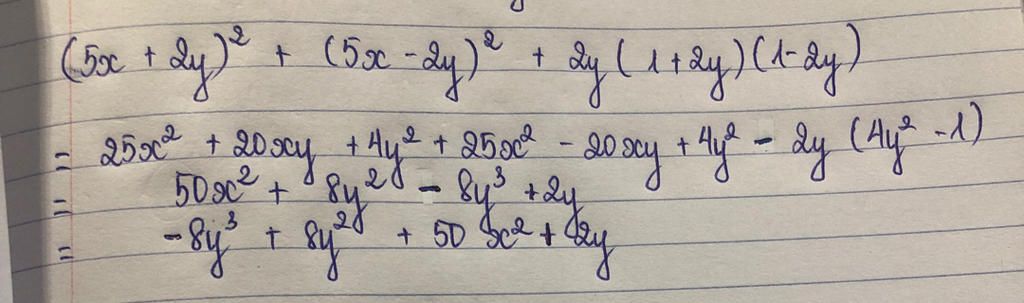 (5x + 2y)² + (5x - 2y)² + 2y (1+2y)(1-2y)
= 25x² + 20xy + 4y² + 25x² - 20xy + 4y² - 2y (4y² - 1)
= 50x² + 8y² - 8y³ + 2y
= -8y³ + 8y² + 50x² + 2y